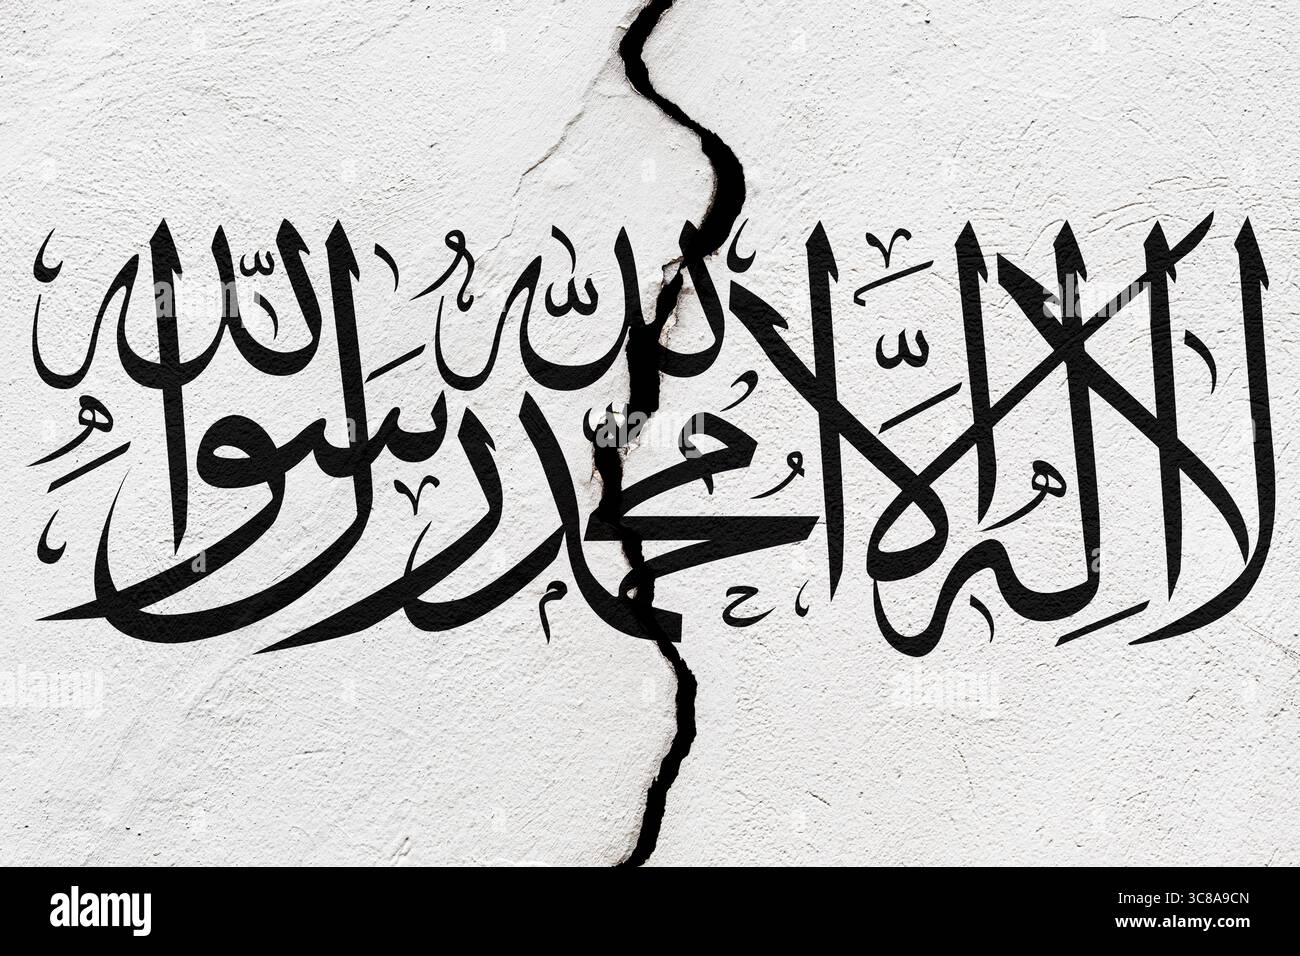 لا إله إلا الله محمد رسول الله
alamy
alamy
Image ID: 3C8A9CN
www.alamy.com